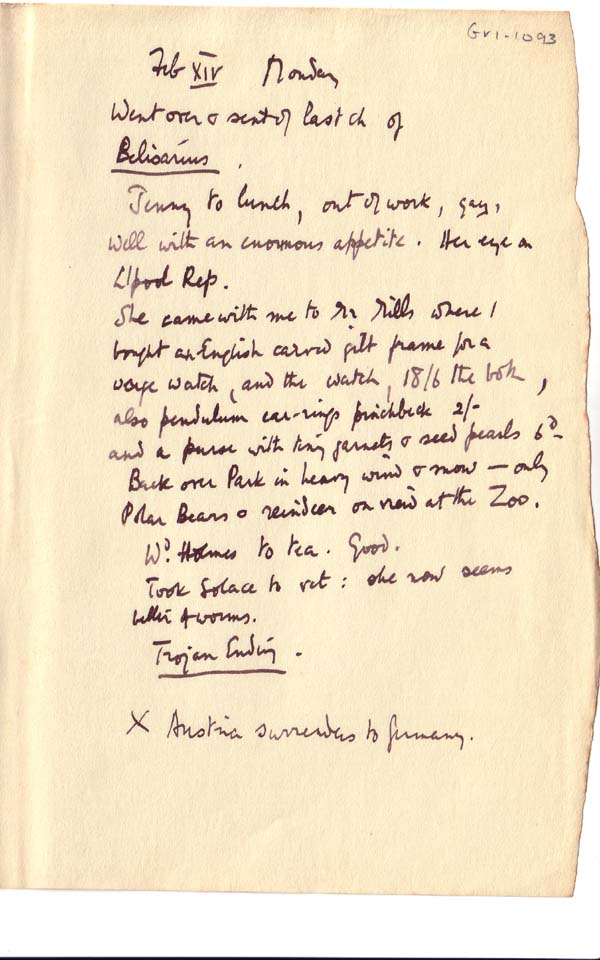 GVI-1093
Feb XIV Monday
Went over & sent off last ch of
Belisarius.
Jenny to lunch, out of work, gay,
well with an enormous appetite. Her eye on
L'pool Rep.
She came with me to Mr Mills where I
bought an English carved gilt frame for a
watch, and the watch, 18/6 the both,
also pendulum ear-rings pinchbeck 2/-
and a purse with tiny garnets & seed pearls 6d-
Back over Park in heavy wind & snow — only
Polar Bears & reindeer on view at the Zoo.
Wd. Holmes to tea. Good.
Took Solace to vet: she now seems
better of worms.
Trojan Ending.
X Austria surrenders to Germany.